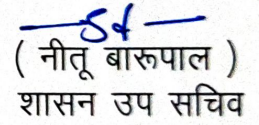 Sd
( नीतू बारूपाल )
शासन उप सचिव